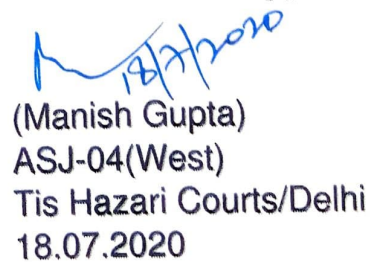 18/7/2020
(Manish Gupta)
ASJ-04(West)
Tis Hazari Courts/Delhi
18.07.2020